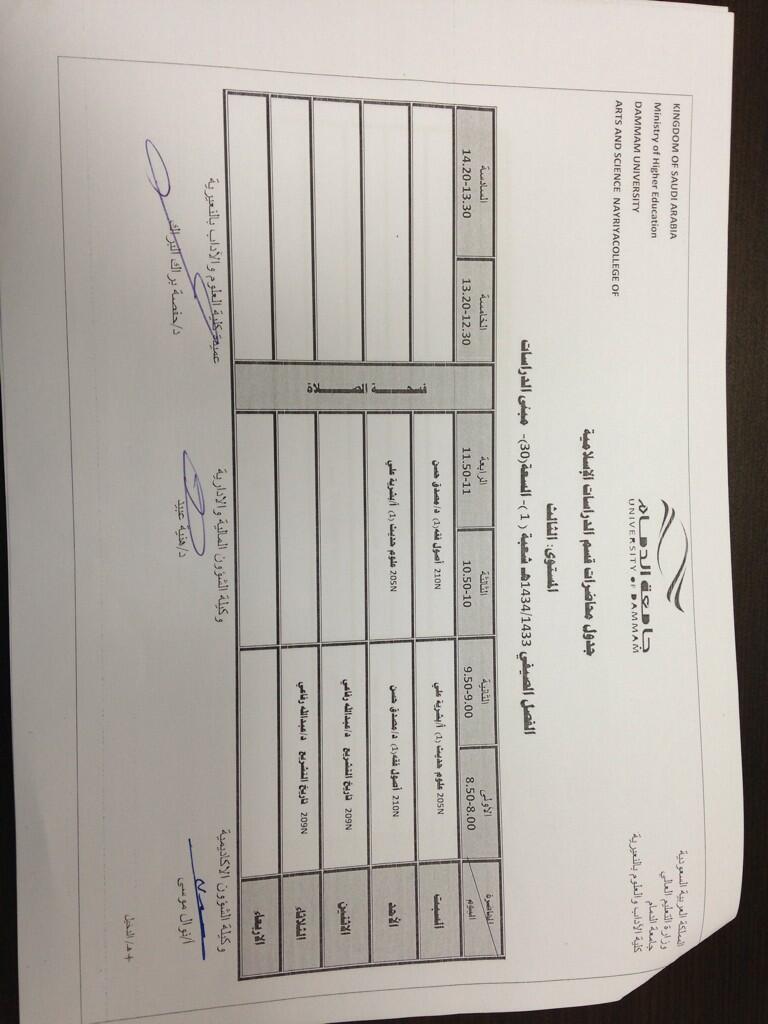 KINGDOM OF SAUDI ARABIA
Ministry of Higher Education
DAMMAM UNIVERSITY
ARTS AND SCIENCE NAYRIYACOLLEGE OF
جامعة الدمام
UNIVERSITY OF DAMMAM
المملكة العربية السعودية
وزارة التعليم العالي
جامعة الدمام
كلية الآداب والعلوم بالنعيرية
جدول محاضرات قسم الدراسات الإسلامية
المستوى: الثالث
الفصل الصيفي 1434/1433هـ شعبة ( 1 )- السعة(30)- مبنى الدراسات
المحاضرة
اليوم
الأولى
8.50-8.00
الثانية
9.50-9.00
الثالثة
10.50-10
الرابعة
11.50-11
الخامسة
13.20-12.30
السادسة
14.20-13.30
فسحة الصلاة
السبت
205N علوم حديث (1) أ/بشرية علي
210N أصول فقه(1) د/مصدق حسن
الأحد
210N أصول فقه(1) د/مصدق حسن
205N علوم حديث (1) أ/بشرية علي
الاثنين
209N تاريخ التشريع د/عبدالله رفاعي
الثلاثاء
209N تاريخ التشريع د/عبدالله رفاعي
الاربعاء
وكيلة الشؤون الاكاديمية
أ/نوال موسى
وكيلة الشؤون المالية والادارية
د/هنية عبيد
عميدة كلية العلوم والآداب بالنعيرية
د/حفصة براك البراك
+ هـ/ الدخيل